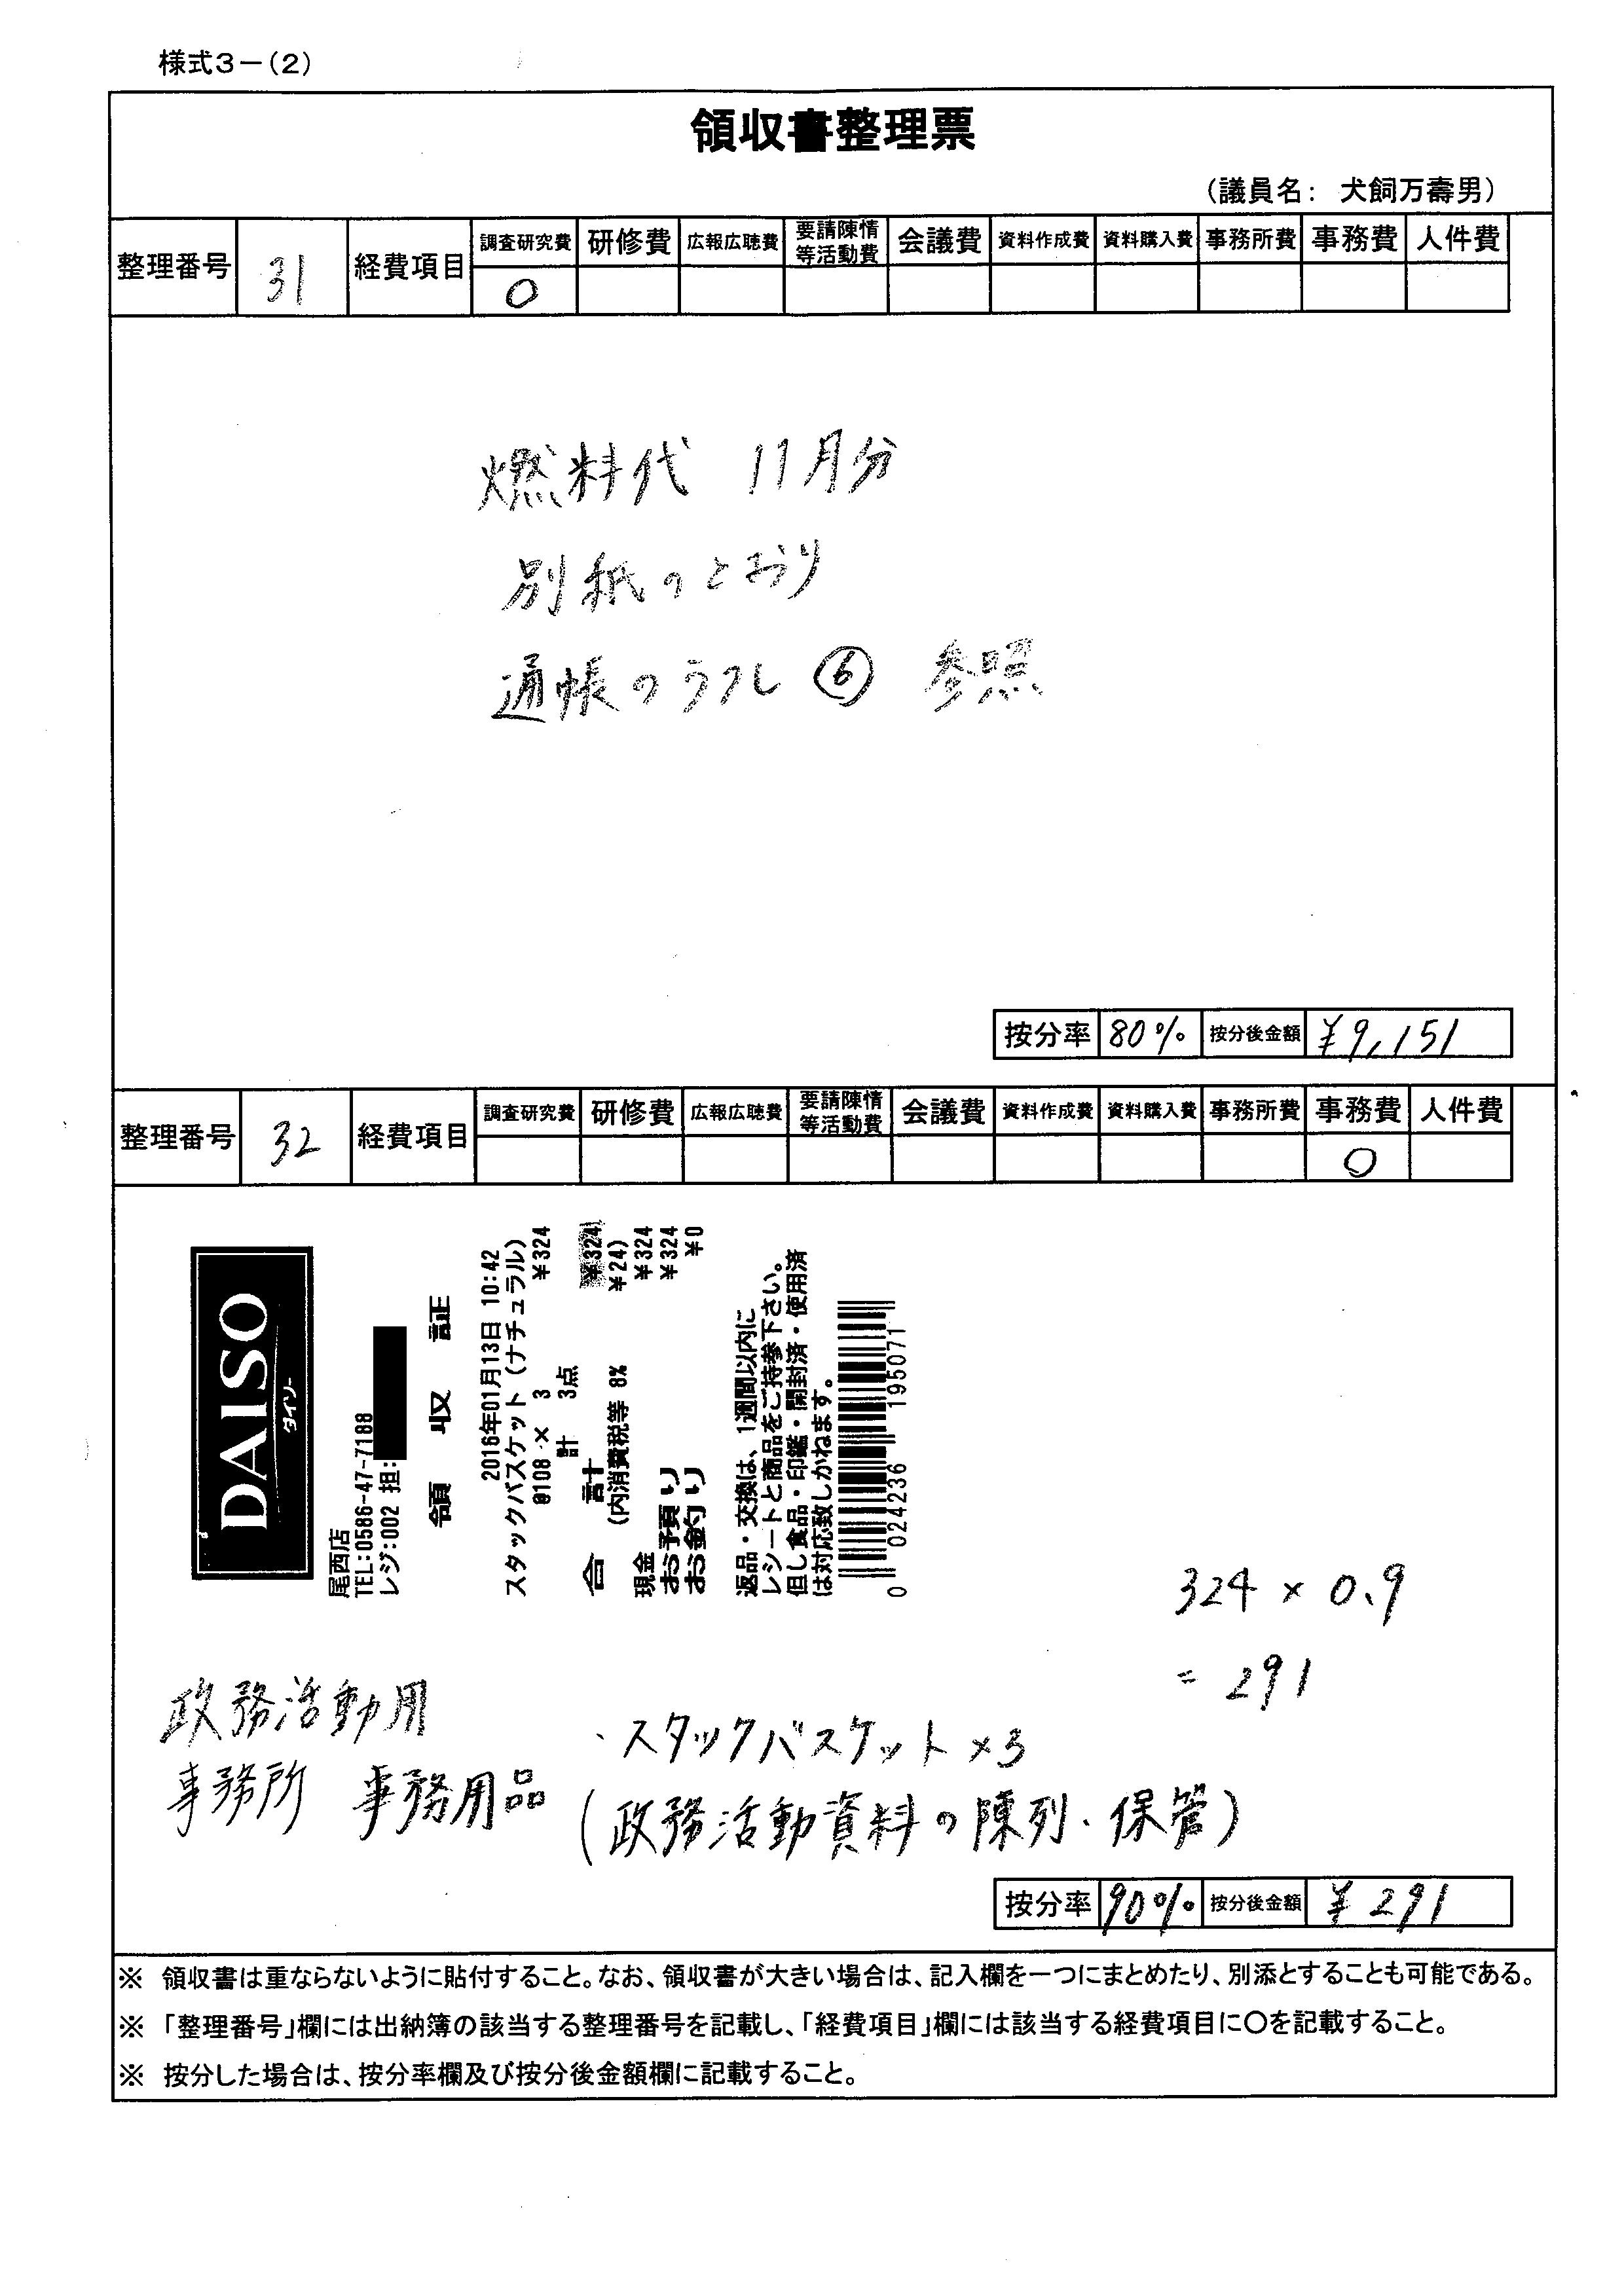 様式3－(2)
領収書整理票
(議員名: 犬飼万壽男)
整理番号 31 経費項目 調査研究費 研修費 広報広聴費 要請陳情等活動費 会議費 資料作成費 資料購入費 事務所費 事務費 人件費
○
燃料代 11月分
別紙のとおり
通帳のうつし ⑥ 参照
按分率 80% 按分後金額 ¥9,151
整理番号 32 経費項目 調査研究費 研修費 広報広聴費 要請陳情等活動費 会議費 資料作成費 資料購入費 事務所費 事務費 人件費
○
DAISO
ダイソー
尾西店
TEL:0586-47-7188
レジ:002 担:
領収証
2016年01月13日 10:42
スタックバスケット(ナチュラル)
@108 × 3 ¥324
計 3点
合計 ¥324
(内消費税等 8% ¥24)
現金 ¥324
お預り ¥324
お釣り ¥0
返品・交換は、1週間以内に
レシートと商品をご持参下さい。
但し食品・印鑑・開封済・使用済
は対応致しかねます。
0 024236 195071
324 × 0.9
= 291
政務活動用
事務所 事務用品
・スタックバスケット×3
(政務活動資料の陳列・保管)
按分率 90% 按分後金額 ¥291
※ 領収書は重ならないように貼付すること。なお、領収書が大きい場合は、記入欄を一つにまとめたり、別添とすることも可能である。
※ 「整理番号」欄には出納簿の該当する整理番号を記載し、「経費項目」欄には該当する経費項目に○を記載すること。
※ 按分した場合は、按分率欄及び按分後金額欄に記載すること。